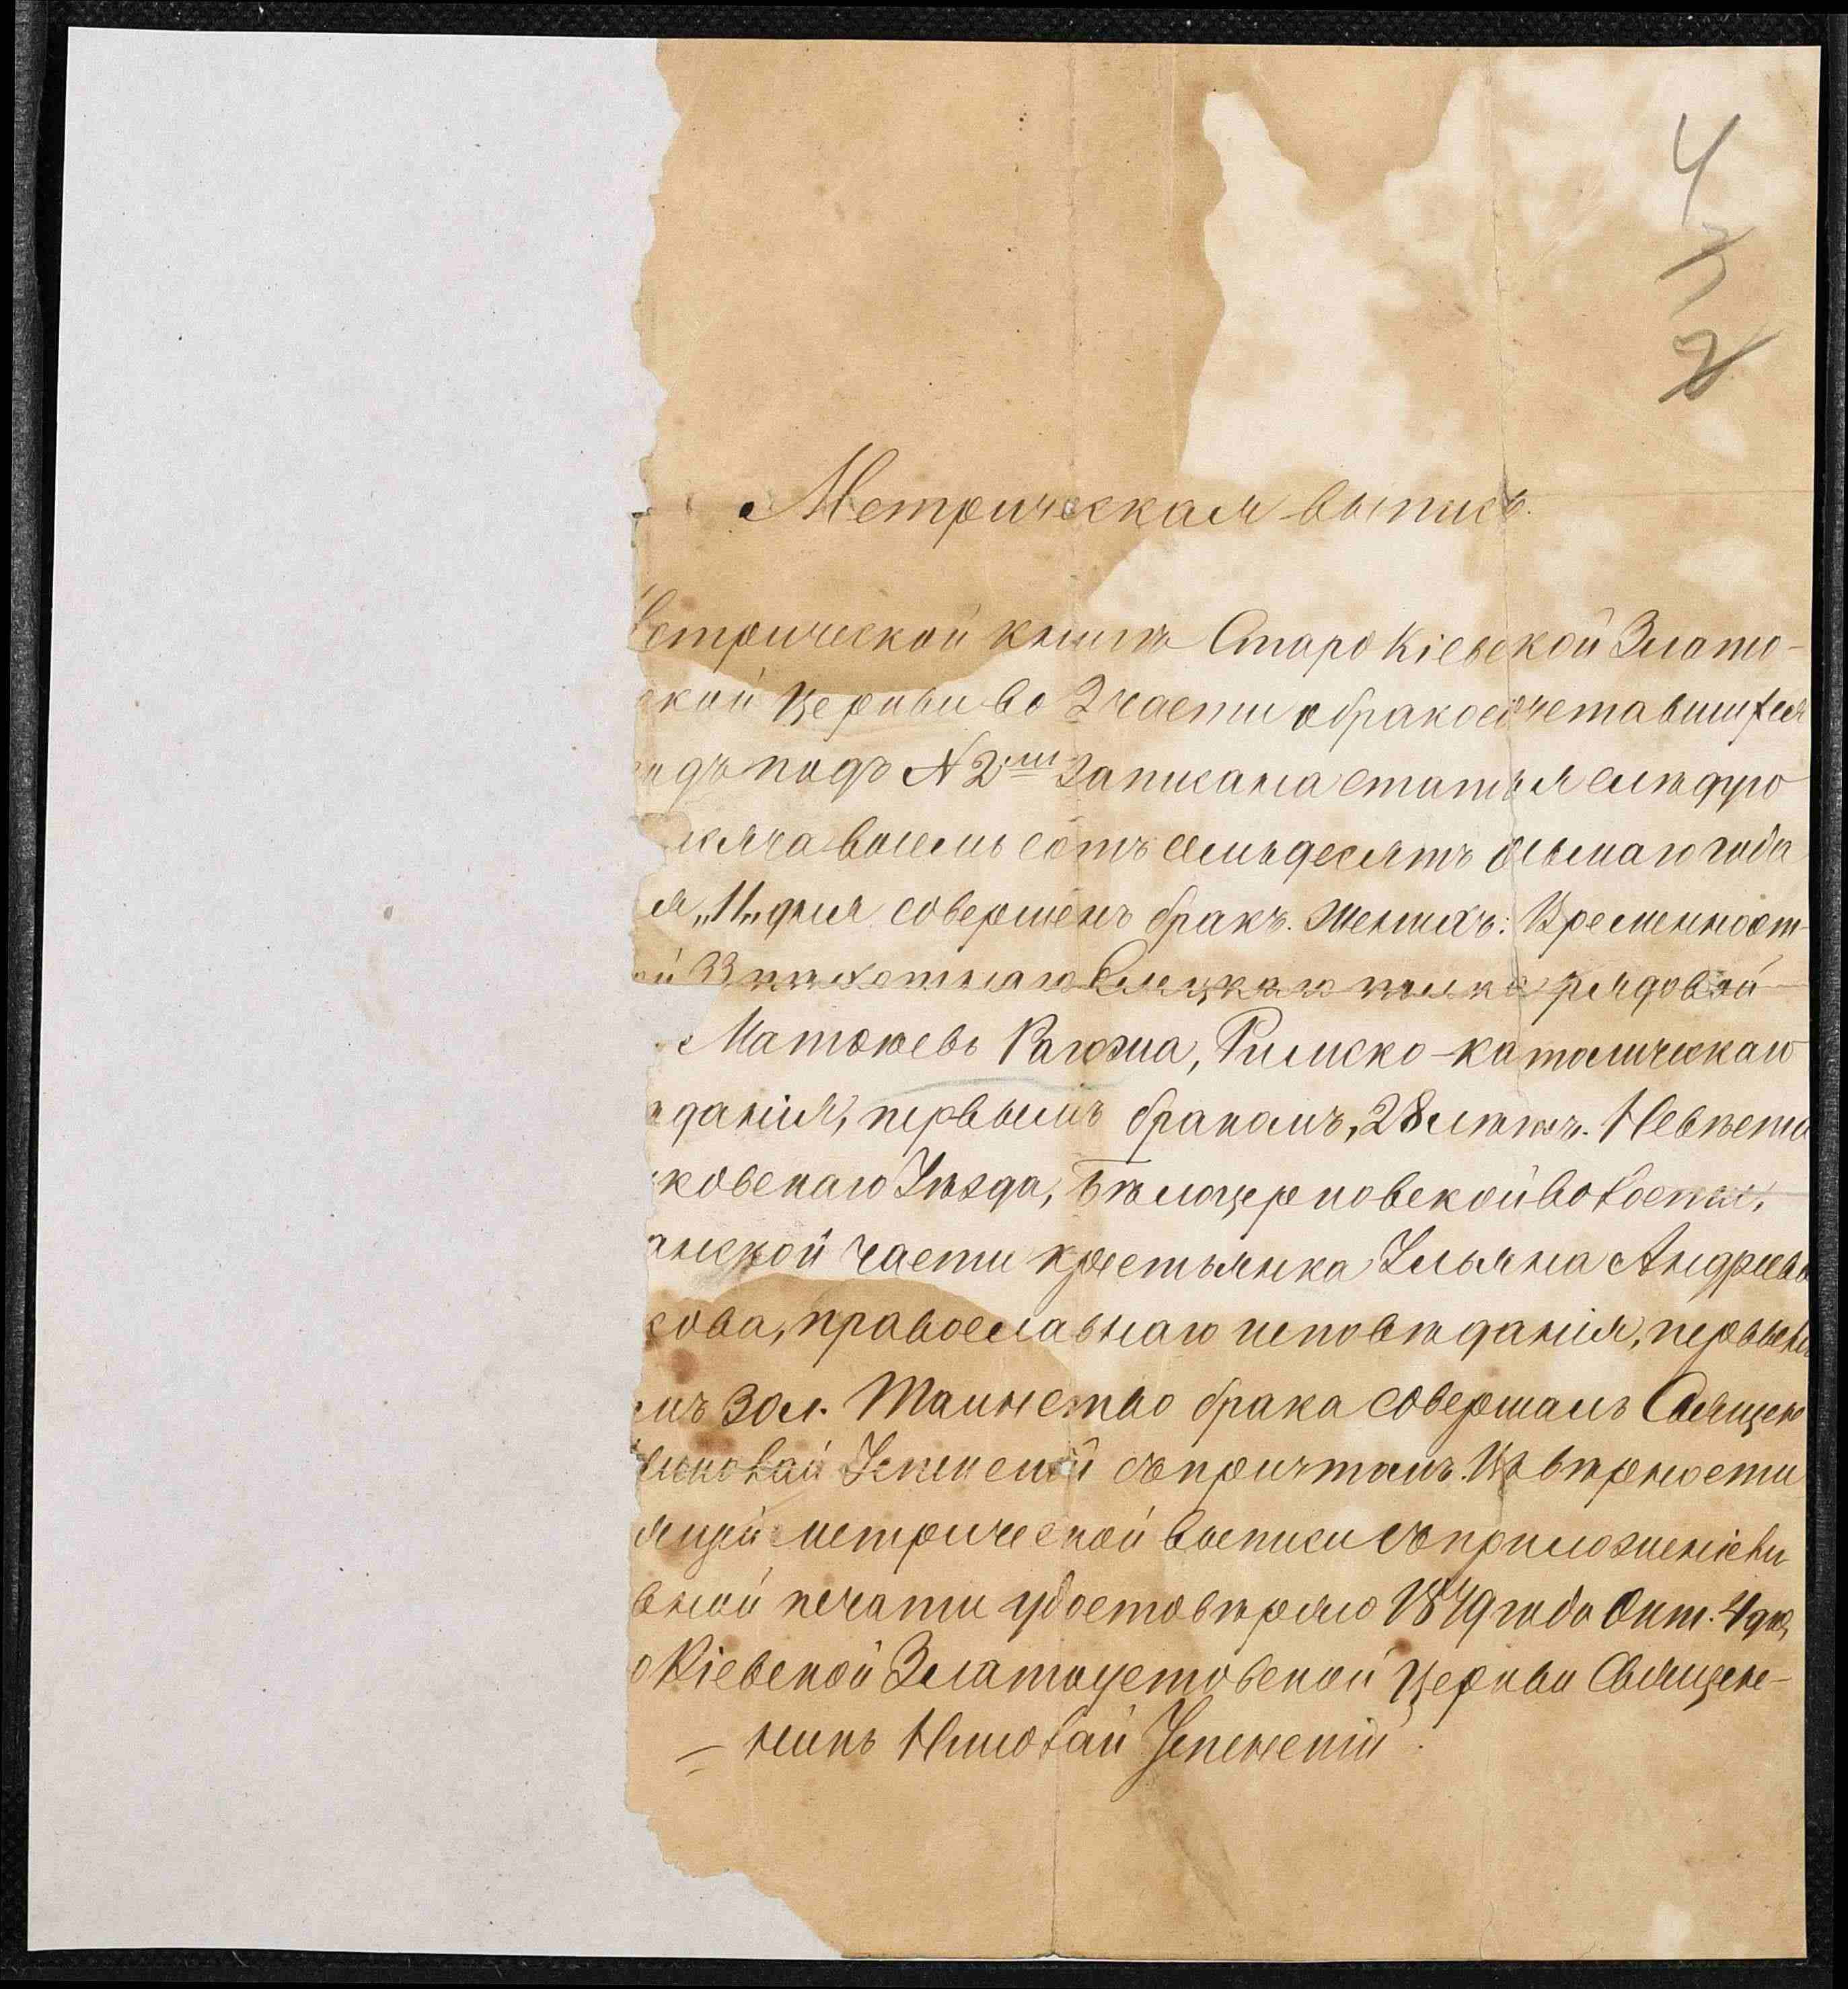 4
2
Метрическая выпись.
етрической книгѣ Старо Кіевской Злато-
ской Церкви во 2 части о бракосочетавшихся
одъ подъ № 2мъ записана статья слѣдую
сяча восемь сотъ семьдесятъ осьмаго года
я „11„ дня совершенъ бракъ. Женихъ: Временноот-
ой 33 пѣхотнаго Елецкаго полка рядовой
Матѳѣевъ Рагозна, Римско-католическаго
ѣданія, первымъ бракомъ, 28 лѣтъ. Невѣста
ковскаго Уѣзда, Бѣлоцерковской волости,
анской части крестьянка Ульяна Андреева
кова, православнаго исповѣданія, первымъ
мъ 30 л. Таинство брака совершалъ Священ
иколай Успенскій съ причтомъ. Въ вѣрности
ящей метрической выписи съ приложеніемъ
вной печати удостовѣряю 1879 года Окт. 4 дня,
о Кіевской Златоустовской Церкви Священ-
никъ Николай Успенскій